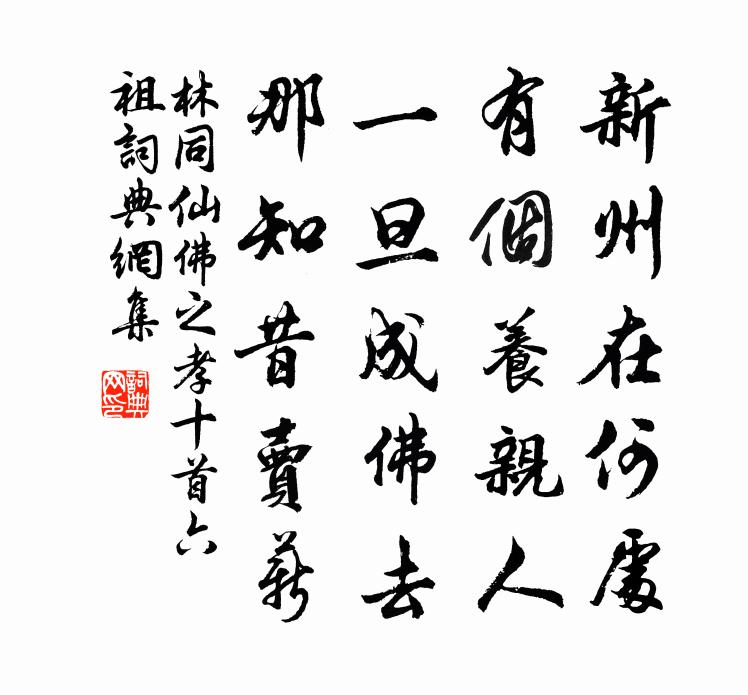 新州在何處
有個養親人
一旦成佛去
那知昔賣薪
林同仙佛之孝十首六
祖詞典網集
詞典
网印